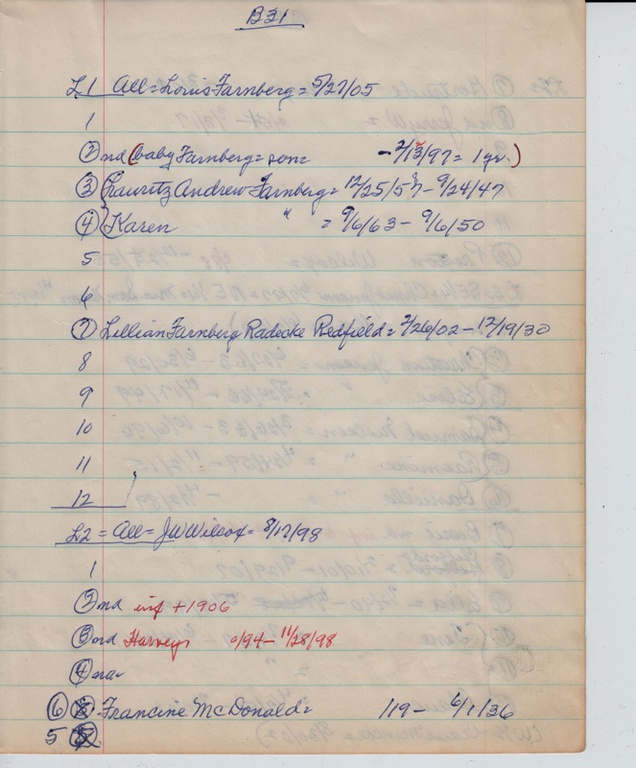 B31
L1 All = Louis Farnberg = 5/27/05
1
② nd (baby Farnberg = son = - 2/13/97 = 1 yr.)
③ Lauritz Andrew Farnberg = 12/25/57 - 9/24/47
④ Karen " = 9/6/63 - 9/6/50
5
6
⑦ Lillian Farnberg Radecke Redfield = 2/26/02 - 12/19/30
8
9
10
11
12
L2 = All = JW Wilcox = 8/17/98
1
② nd inf + 1906
③ nd Harvey 0/94 - 11/28/98
④ na
⑥ Francine McDonald = /19 - 6/1/36
5